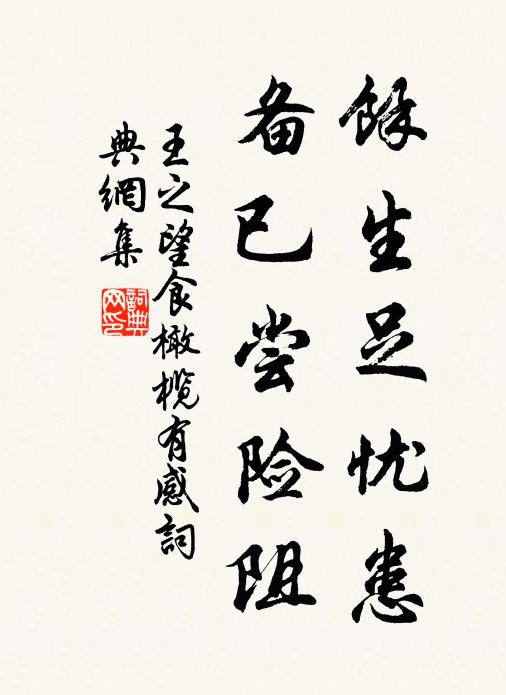 馀生足忧患
备已尝险阻
王之望食橄榄有感詞
典網集
詞典网印